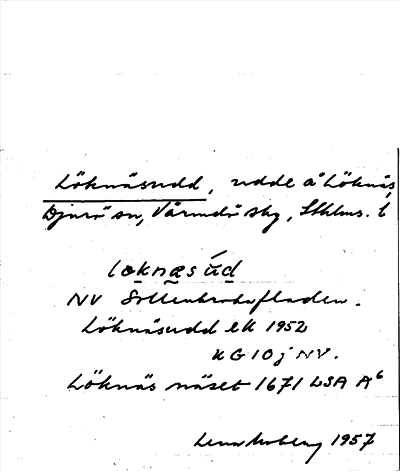 Löknäsudd, udde å Löknäs,
Djurö sn, Värmdö skg, Sthlms. l
loknæs úd
NV Sollenkrokafladen.
Löknäsudd ek 1952
KG 10 j NV.
Löknäs näset 1671 LSA A6
1957